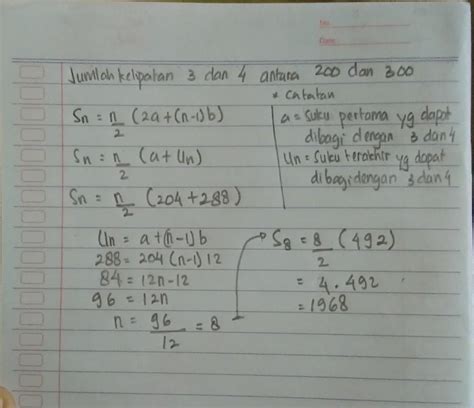 No:
Date:
Jumlah kelipatan 3 dan 4 antara 200 dan 300
Sn = n/2 (2a+(n-1)b)
Sn = n/2 (a+Un)
Sn = n/2 (204+288)
* catatan
a = Suku pertama yg dapat
dibagi dengan 3 dan 4
Un = Suku terakhir yg dapat
dibagi dengan 3 dan 4
Un = a+(n-1)b
288 = 204(n-1)12
84 = 12n-12
96 = 12n
n = 96/12 = 8
S8 = 8/2 (492)
= 4.492
= 1968